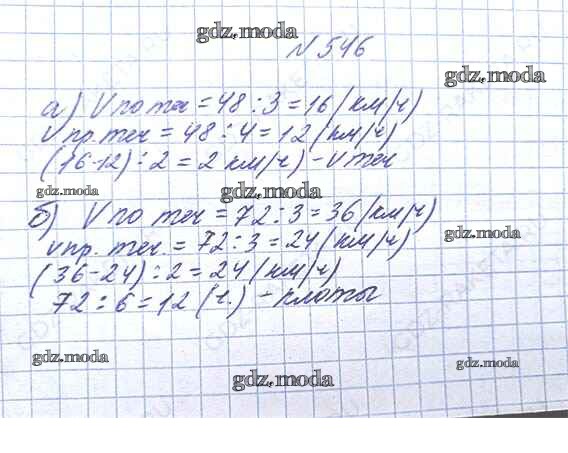 gdz.moda
N 546
gdz.moda
а) V по теч = 48 : 3 = 16 (км/ч)
v пр. теч = 48 : 4 = 12 (км/ч)
(16-12) : 2 = 2 км/ч) - v теч
gdz.moda gdz.moda
б) V по теч = 72 : 3 = 36 (км/ч)
gdz.moda
v пр. теч. = 72 : 3 = 24 (км/ч)
(36-24) : 2 = 24 (км/ч)
72 : 6 = 12 (ч.) - плоты
gdz.moda
gdz.moda
gdz.moda